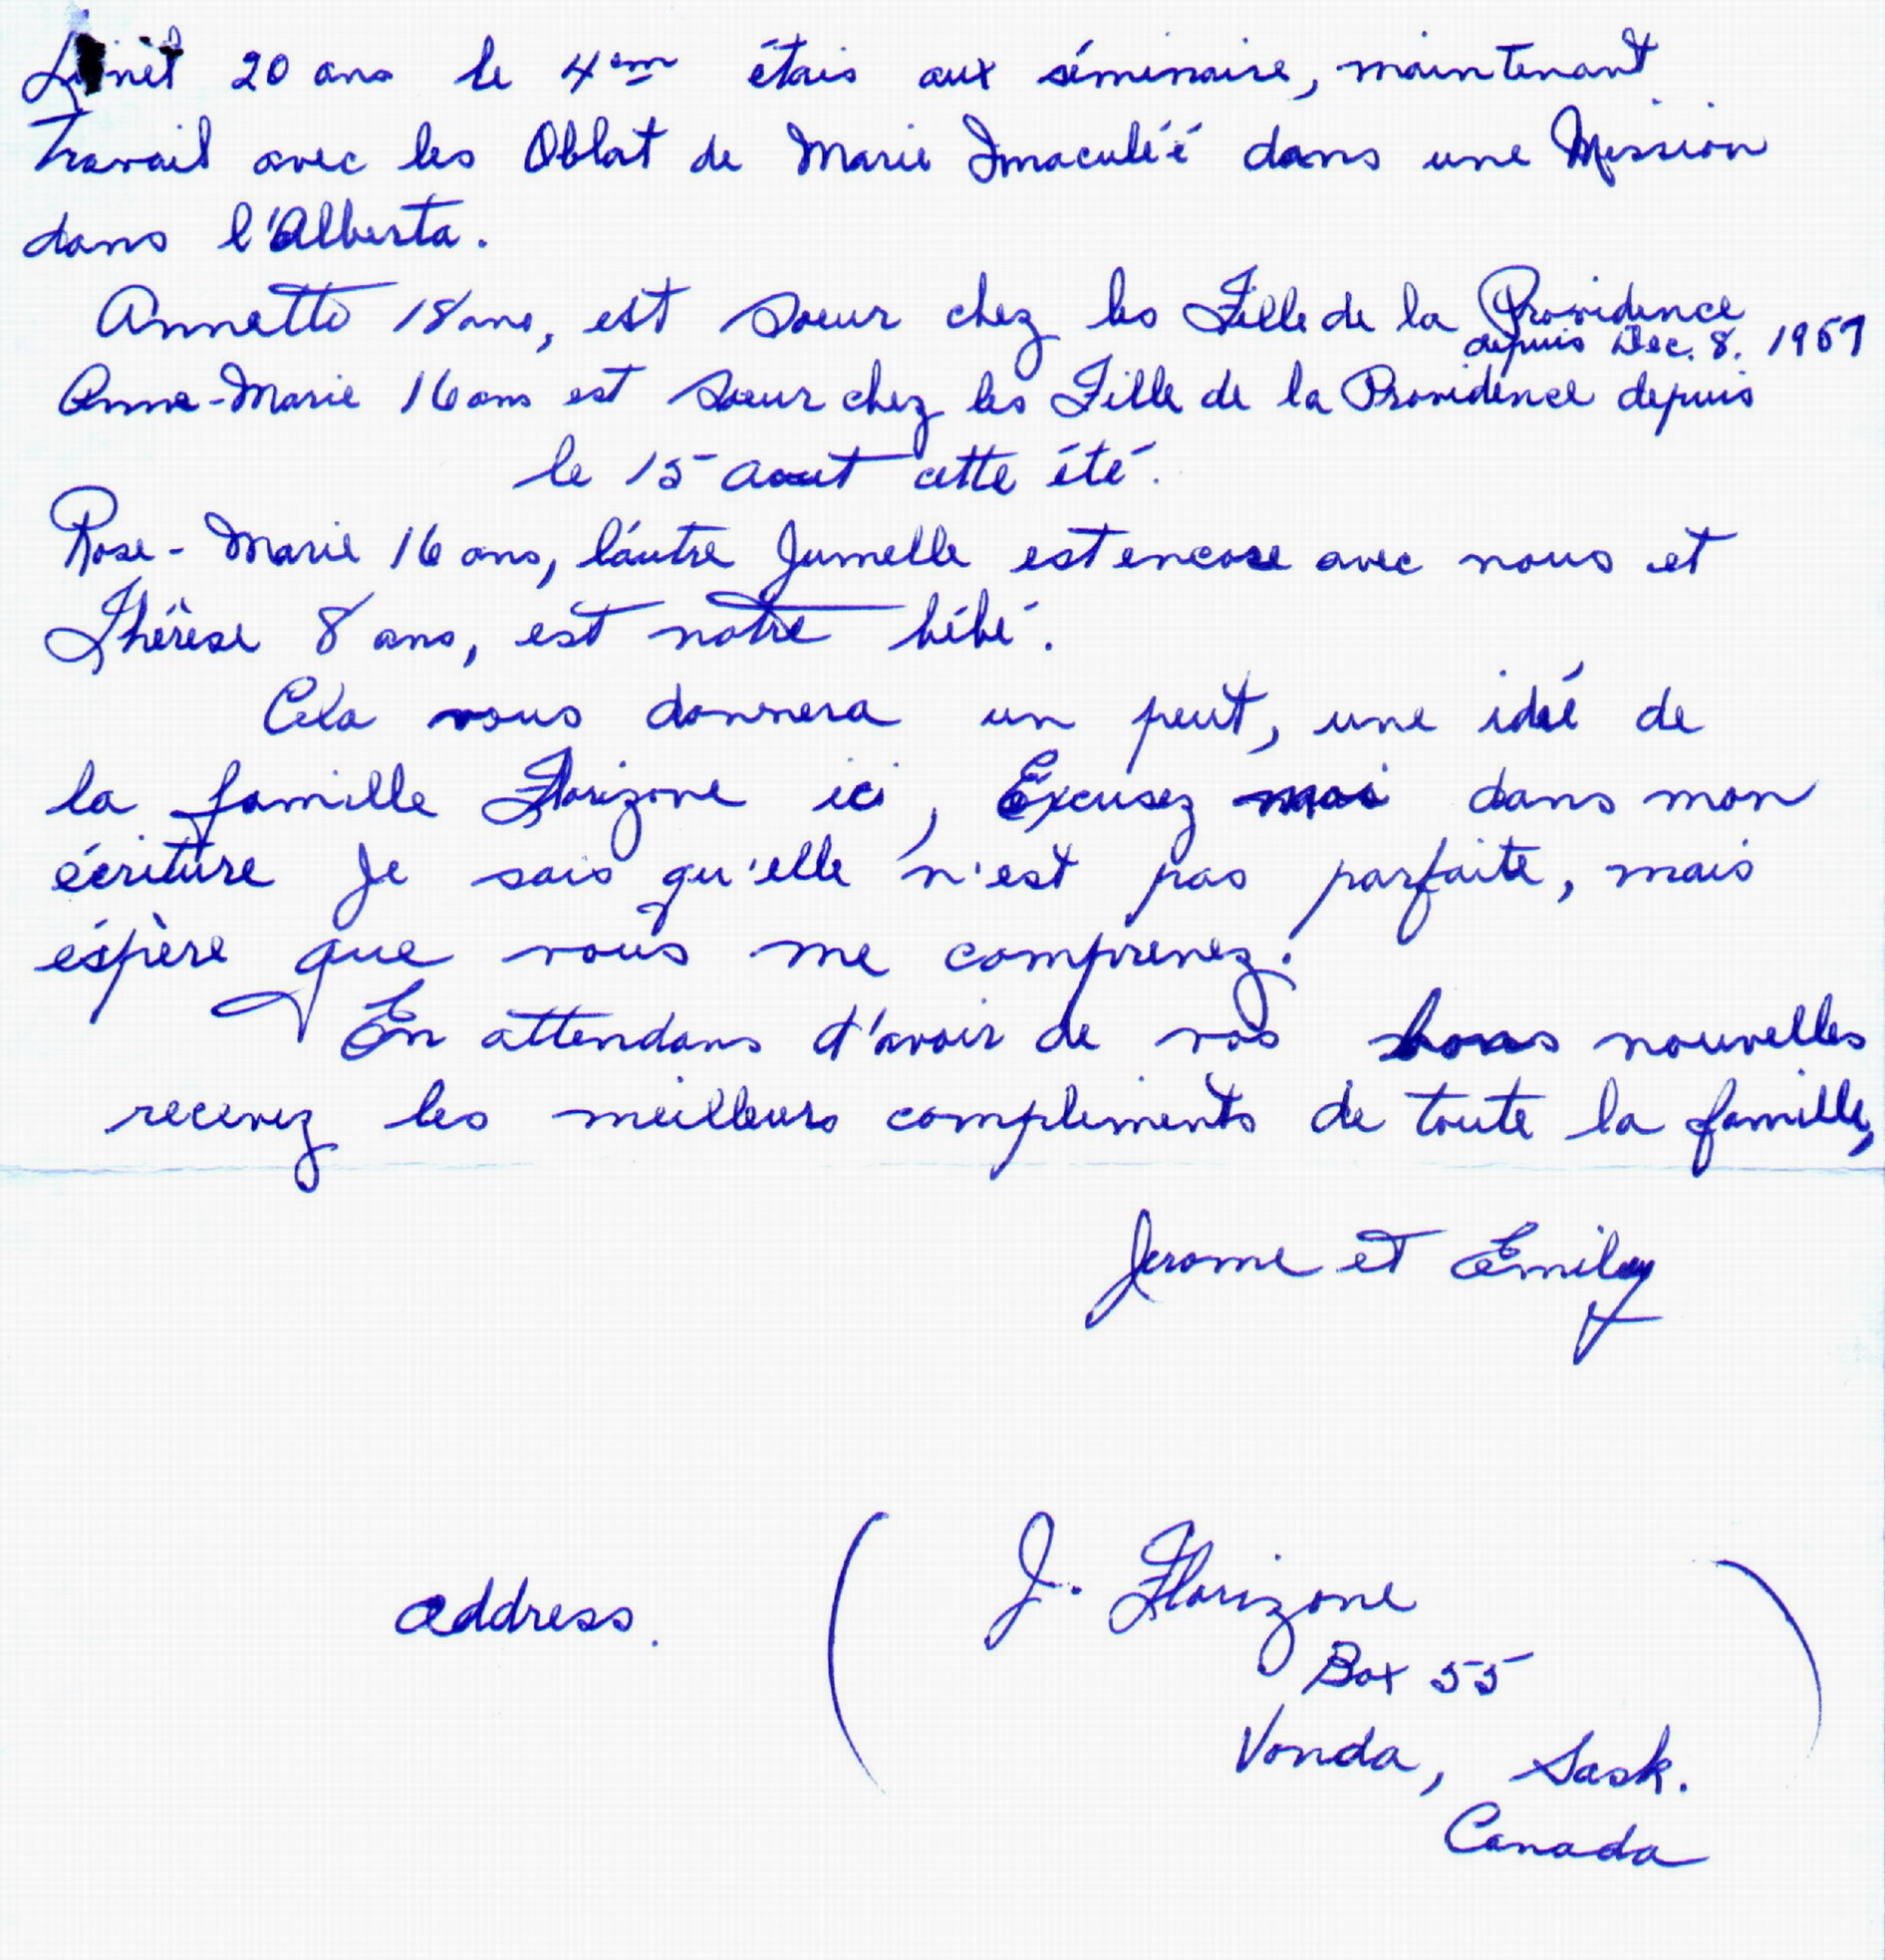 20 ans le 4em étais aux séminaire, maintenant
Travail avec les Oblat de Marie Imaculéé dans une Mission
dans l'Alberta.
Annette 18 ans, est soeur chez les Fille de la Providence
depuis Dec. 8.
Anne-Marie 16 ans est soeur chez les Fille de la Providence depuis
le 15 aout cette été.
Rose-Marie 16 ans, l'autre Jumelle est encore avec nous et
Thérèse 8 ans, est notre bébé.
Cela vous donnera un peut, une idée de
la famille Florizone ici, Excusez moi dans mon
écriture Je sais qu'elle n'est pas parfaite, mais
éspère que vous me comprenez.
En attendans d'avoir de vos bons nouvelles
recevez les meilleurs compliments de toute la famille,
Jerome et Emily
address.
( J. Florizone )
Box 55
Vonda, Sask.
Canada